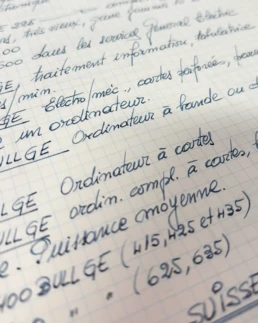 vieux, gamme
00 dans les services Général Electric
500 traitement information, tabulatrice
/min.
GE Electro/méc., cartes perforées,
un ordinateur.
ULLGE Ordinateur à bande ou d
LGE Ordinateur à cartes
ULLGE ordin. compl. à cartes,
e. Puissance moyenne.
400 BULLGE (415, 425 et 435)
" " (625, 635)
SUISSE